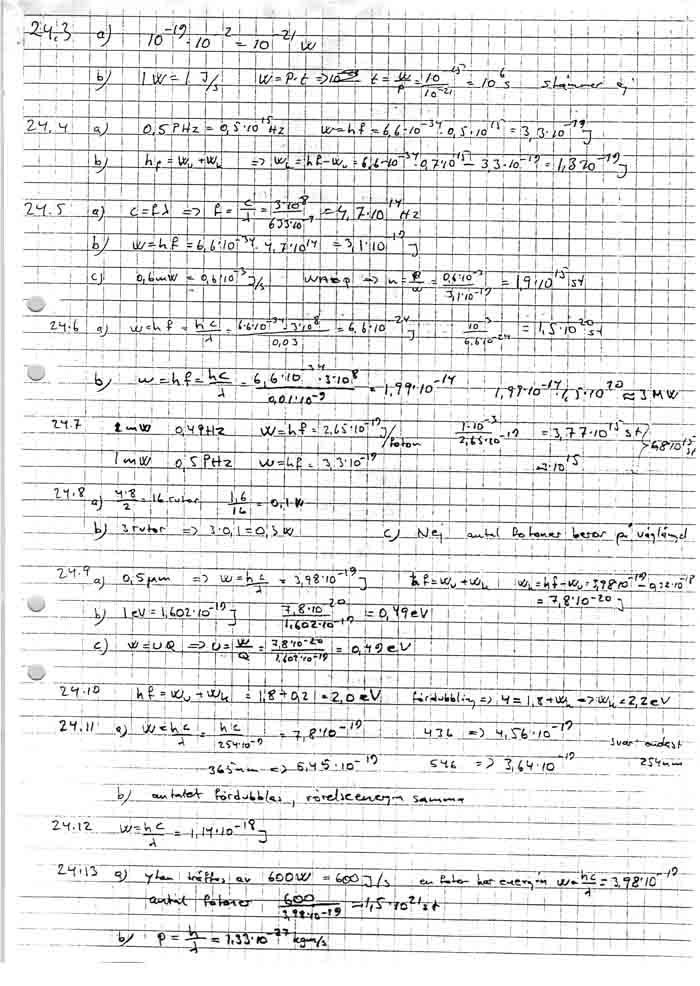 24.3 a) 10^-19 · 10^-2 = 10^-21 W
b) 1W = 1 J/s W = P·t => t = W/P = 10^-15/10^-21 = 10^6 s stämmer ej
24.4 a) 0,5 PHz = 0,5·10^15 Hz w = hf = 6,6·10^-34 · 0,5·10^15 = 3,3·10^-19 J
b) hf = Wu + Wk => Wk = hf - Wu = 6,6·10^-34 · 0,7·10^15 - 3,3·10^-19 = 1,3·10^-19 J
24.5 a) c = fλ => f = c/λ = 3·10^8/633·10^-9 = 4,7·10^14 Hz
b) w = hf = 6,6·10^-34 · 4,7·10^14 = 3,1·10^-19 J
c) 0,6mW = 0,6·10^-3 J/s => n = P/w = 0,6·10^-3/3,1·10^-19 = 1,9·10^15 st
24.6 a) w = hf = hc/λ = 6,6·10^-34 · 3·10^8/0,03 = 6,6·10^-24 J 10^-3/6,6·10^-24 = 1,5·10^20 st
b) w = hf = hc/λ = 6,6·10^-34 · 3·10^8/0,01·10^-9 = 1,99·10^-14 1,99·10^-14 · 1,5·10^20 ≈ 3 MW
24.7 1mW 0,4PHz W = hf = 2,65·10^-19 J/foton 1·10^-3/2,65·10^-19 = 3,77·10^15 st
1mW 0,5PHz W = hf = 3,3·10^-19 = 3·10^15
24.8 a) 4·8/2 = 16 rutor 1,6/16 = 0,1 W
b) 3 rutor => 3·0,1 = 0,3 W c) Nej antal fotoner beror på våglängd
24.9 a) 0,5μm => w = hc/λ = 3,98·10^-19 J hf = Wu + Wk Wk = hf - Wu = 3,98·10^-19 - 0,32·10^-18
= 7,8·10^-20 J
b) 1eV = 1,602·10^-19 J 7,8·10^-20/1,602·10^-19 = 0,49 eV
c) W = UQ => U = W/Q = 7,8·10^-20/1,602·10^-19 = 0,49 eV
24.10 hf = Wu + Wk = 1,8 + 0,21 = 2,0 eV fördubbling => 4 = 1,8 + Wk => Wk = 2,2 eV
24.11 a) W = hc/λ = hc/254·10^-9 = 7,8·10^-19 436 => 4,56·10^-19 svar: endast
365nm => 5,45·10^-19 546 => 3,64·10^-19 254nm
b) antalet fördubblas, rörelseenergin samma
24.12 W = hc/λ = 1,14·10^-18 J
24.13 a) ytan träffas av 600W = 600 J/s en foton har energin w = hc/λ = 3,98·10^-19
antal fotoner 600/3,98·10^-19 = 1,5·10^21 st
b) p = h/λ = 1,33·10^-27 kgm/s